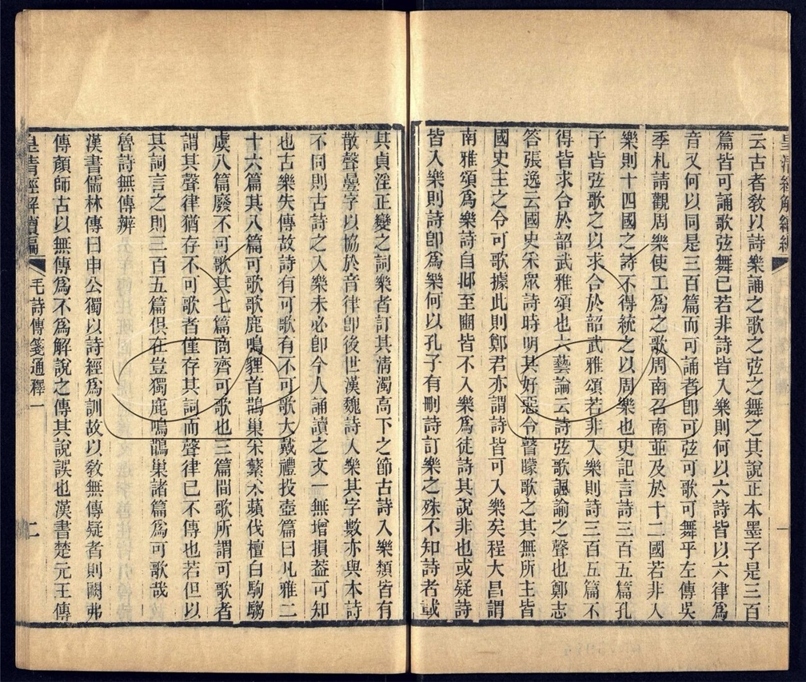 皇清經解續編
云古者敎以詩樂誦之歌之弦之舞之其說正本墨子是三百
篇皆可誦歌弦舞已若非詩皆入樂則何以六詩皆以六律爲
音又何以同是三百篇而可誦者卽可弦可歌可舞乎左傳吳
季札請觀周樂使工爲之歌周南召南並及於十二國若非入
樂則十四國之詩不得統之以周樂也史記言詩三百五篇孔
子皆弦歌之以求合於韶武雅頌若非入樂則詩三百五篇不
得皆求合於韶武雅頌也六藝論云詩弦歌諷諭之聲也鄭志
答張逸云國史采眾詩時明其好惡令瞽矇歌之其無所主皆
國史主之令可歌據此則鄭君亦謂詩皆可入樂矣程大昌謂
南雅頌爲樂詩自邶至豳皆不入樂爲徒詩其說非也或疑詩
皆入樂則詩卽爲樂何以孔子有刪詩訂樂之殊不知詩者載
其貞淫正變之詞樂者訂其淸濁高下之節古詩入樂類皆有
散聲疊字以協於音律卽後世漢魏詩入樂其字數亦與本詩
不同則古詩之入樂未必卽今人誦讀之文一無增損蓋可知
也古樂失傳故詩有可歌有不可歌大戴禮投壺篇曰凡雅二
十六篇其八篇可歌歌鹿鳴貍首鵲巢采蘩采蘋伐檀白駒騶
虞八篇廢不可歌其七篇商齊可歌也三篇閒歌所謂可歌者
謂其聲律猶存不可歌者僅存其詞而聲律已不傳也若但以
其詞言之則三百五篇俱在豈獨鹿鳴鵲巢諸篇爲可歌哉
魯詩無傳辨
漢書儒林傳曰申公獨以詩經爲訓故以敎無傳疑者則闕弗
傳顏師古以無傳爲不爲解說之傳其說誤也漢書楚元王傳
皇清經解續編
毛詩傳箋通釋一
二